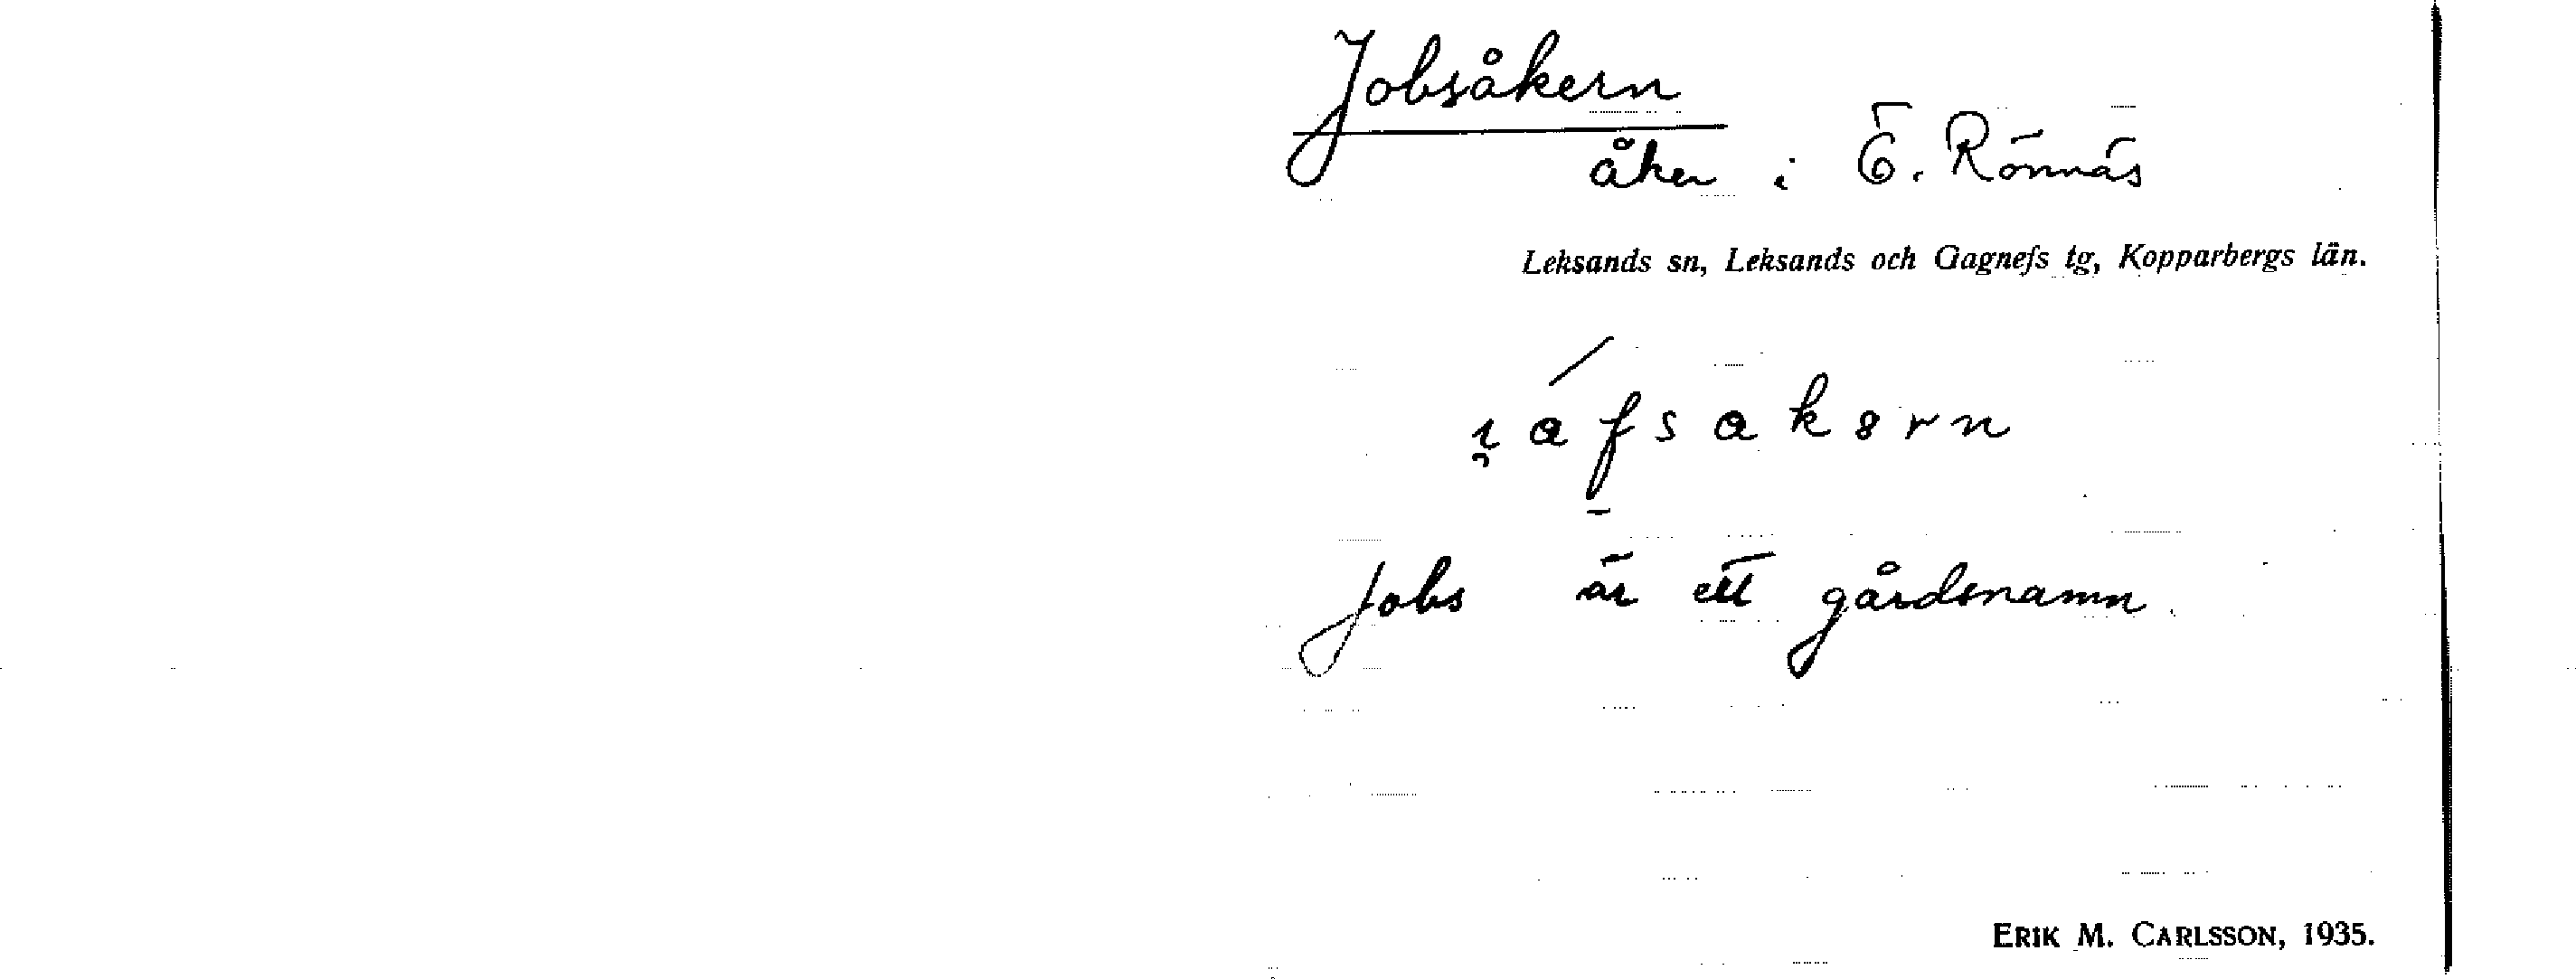 Jobsåkern
åker i Ö. Rönnäs
Leksands sn, Leksands och Gagnefs tg, Kopparbergs län.
Jobs är ett gårdsnamn.
ERIK M. CARLSSON, 1935.